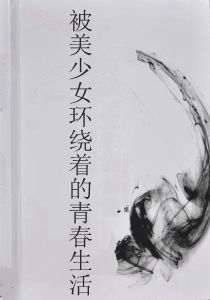 被美少女环绕着的青春生活